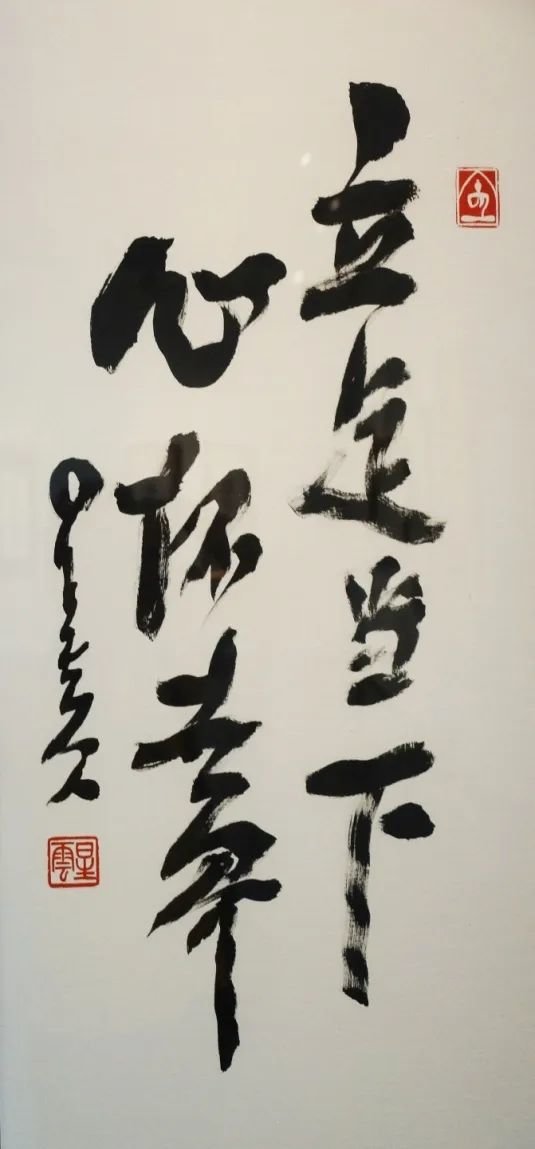 立足当下
心怀世界
星雲
星雲